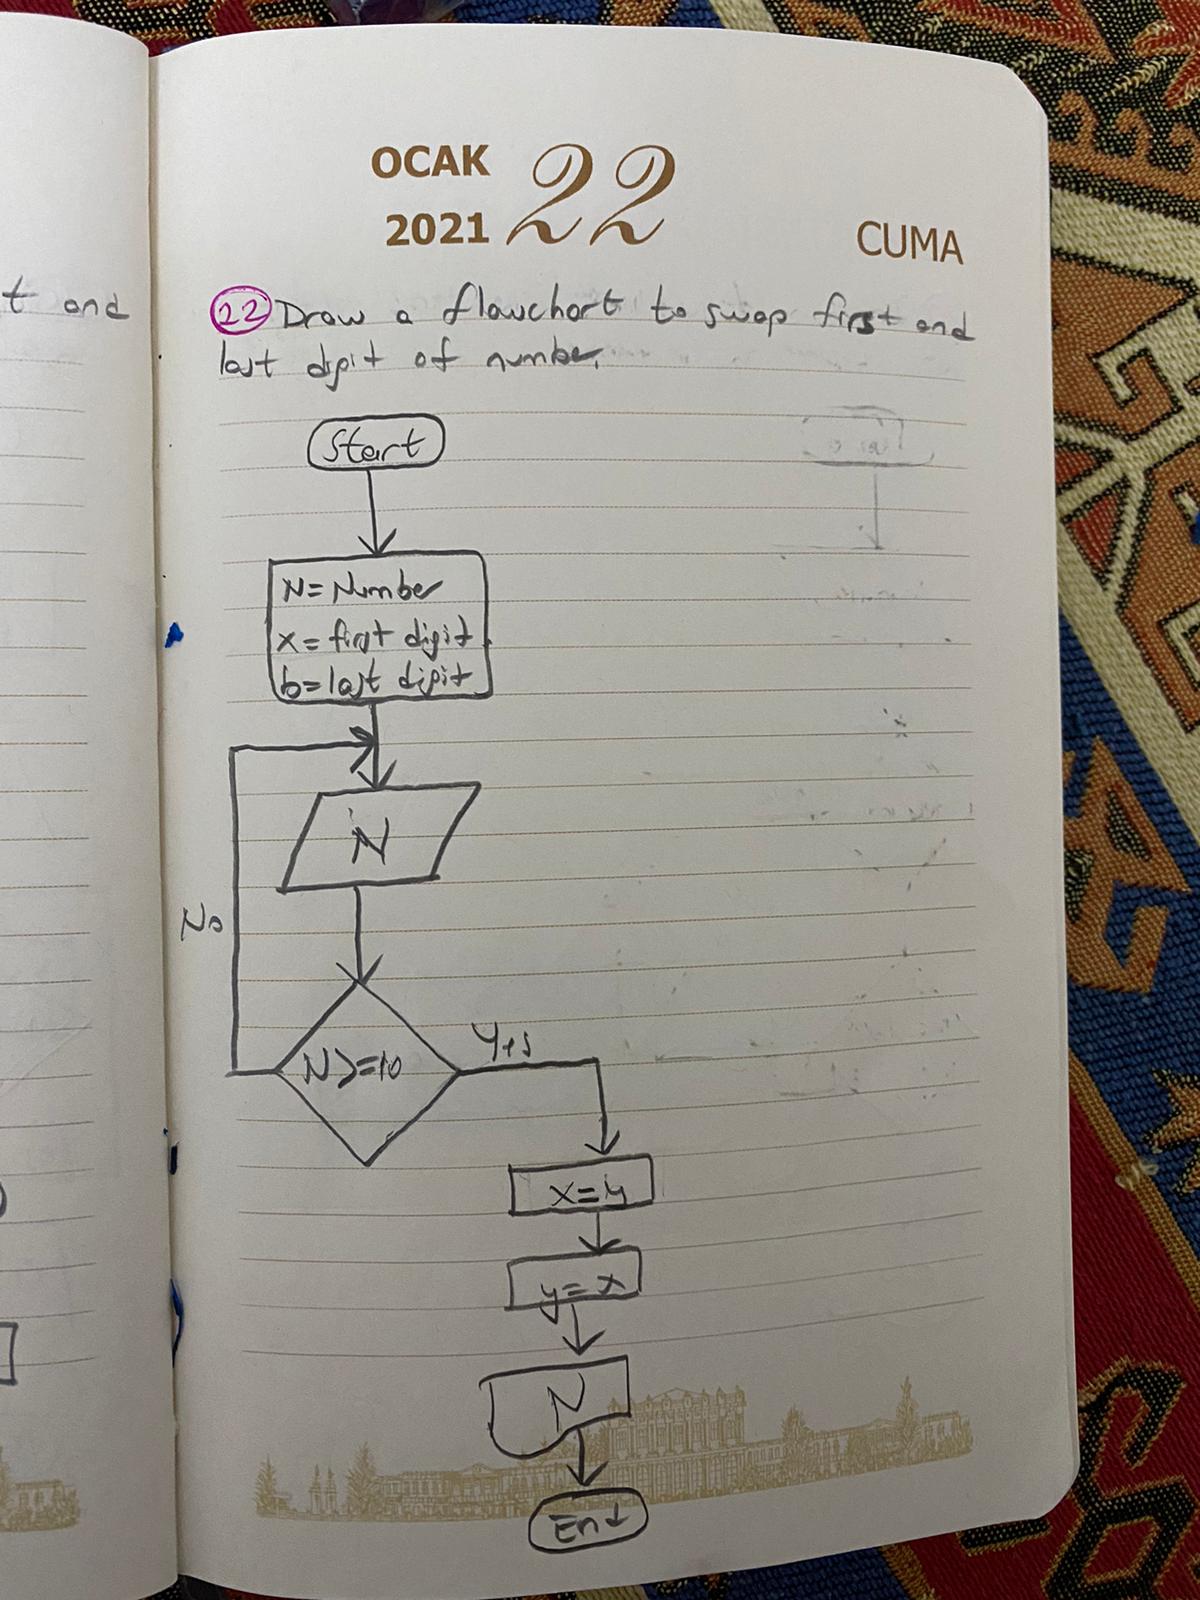 OCAK
2021
22
CUMA
t and
22 Draw a flowchart to swap first and
last digit of number.
Start
N = Number
x = first digit
b = last digit
N
No
N >= 10
Yes
x = y
y = x
N
End